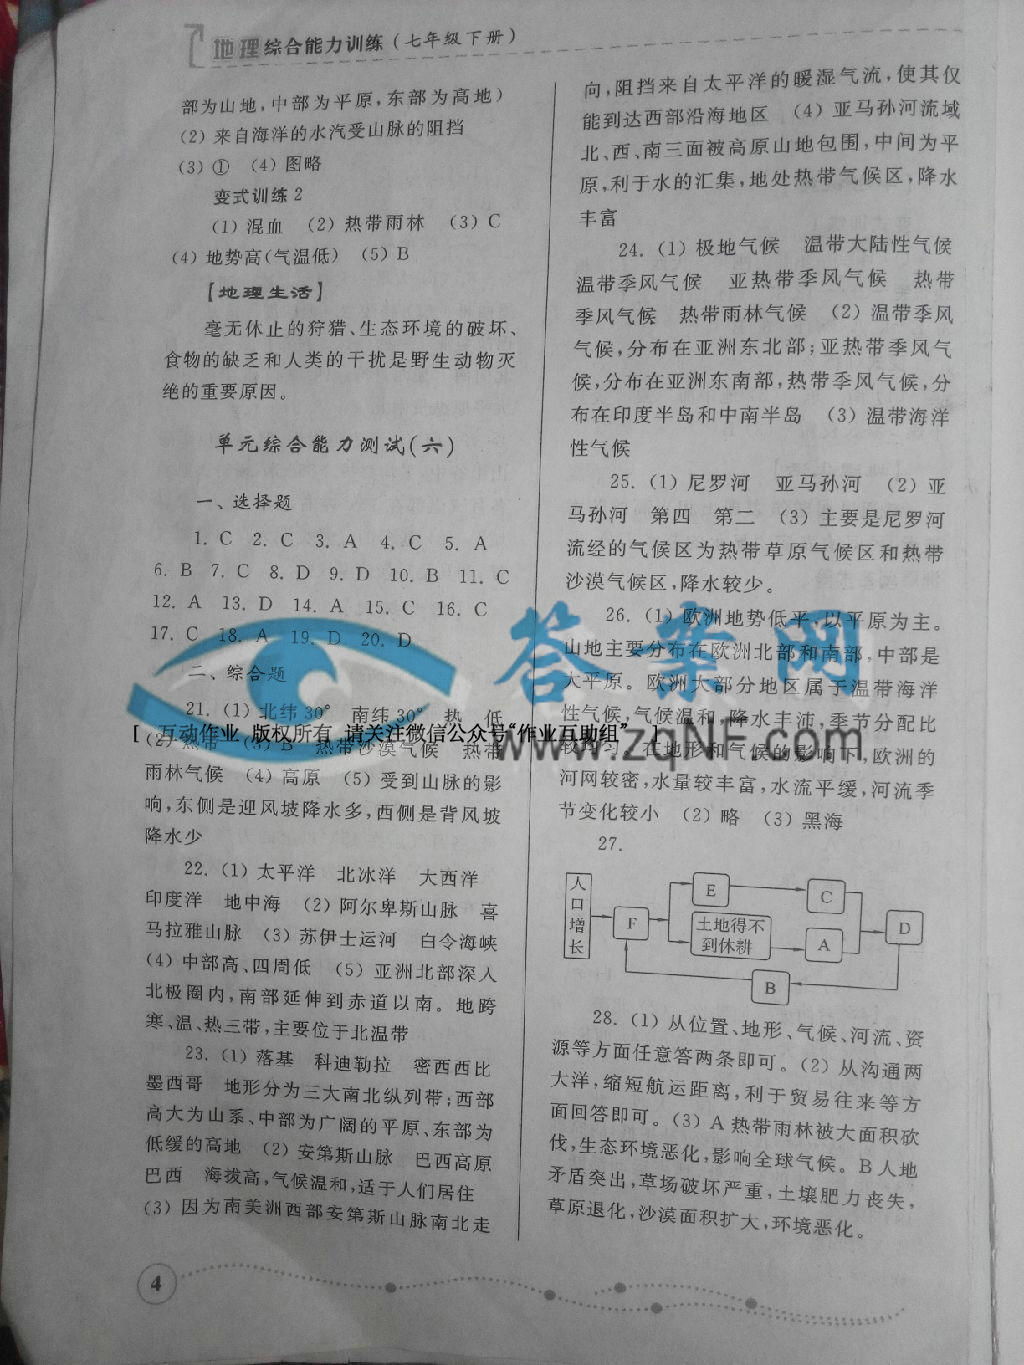 地理综合能力训练(七年级下册)
部为山地,中部为平原,东部为高地)
(2) 来自海洋的水汽受山脉的阻挡
(3) ① (4) 图略
变式训练2
(1) 混血 (2) 热带雨林 (3) C
(4) 地势高(气温低) (5) B
【地理生活】
毫无休止的狩猎、生态环境的破坏、
食物的缺乏和人类的干扰是野生动物灭
绝的重要原因。
单元综合能力测试(六)
一、选择题
1. C 2. C 3. A 4. C 5. A
6. B 7. C 8. D 9. D 10. B 11. C
12. A 13. D 14. A 15. C 16. C
17. C 18. A 19. D 20. D
二、综合题
21. (1) 北纬30° 南纬30° 热 低
(2) 热带 (3) B 热带沙漠气候 热带
雨林气候 (4) 高原 (5) 受到山脉的影
响,东侧是迎风坡降水多,西侧是背风坡
降水少
22. (1) 太平洋 北冰洋 大西洋
印度洋 地中海 (2) 阿尔卑斯山脉 喜
马拉雅山脉 (3) 苏伊士运河 白令海峡
(4) 中部高、四周低 (5) 亚洲北部深入
北极圈内,南部延伸到赤道以南。地跨
寒、温、热三带,主要位于北温带
23. (1) 落基 科迪勒拉 密西西比
墨西哥 地形分为三大南北纵列带;西部
高大为山系、中部为广阔的平原、东部为
低缓的高地 (2) 安第斯山脉 巴西高原
巴西 海拔高,气候温和,适于人们居住
(3) 因为南美洲西部安第斯山脉南北走
向,阻挡来自太平洋的暖湿气流,使其仅
能到达西部沿海地区 (4) 亚马孙河流域
北、西、南三面被高原山地包围,中间为平
原,利于水的汇集,地处热带气候区,降水
丰富
24. (1) 极地气候 温带大陆性气候
温带季风气候 亚热带季风气候 热带
季风气候 热带雨林气候 (2) 温带季风
气候,分布在亚洲东北部;亚热带季风气
候,分布在亚洲东南部,热带季风气候,分
布在印度半岛和中南半岛 (3) 温带海洋
性气候
25. (1) 尼罗河 亚马孙河 (2) 亚
马孙河 第四 第二 (3) 主要是尼罗河
流经的气候区为热带草原气候区和热带
沙漠气候区,降水较少。
26. (1) 欧洲地势低平,以平原为主。
山地主要分布在欧洲北部和南部,中部是
大平原。欧洲大部分地区属于温带海洋
性气候,气候温和,降水丰沛,季节分配比
较均匀。在地形和气候的影响下,欧洲的
河网较密,水量较丰富,水流平缓,河流季
节变化较小 (2) 略 (3) 黑海
27.
人口增长
F
E
C
土地得不
到休耕
A
D
B
28. (1) 从位置、地形、气候、河流、资
源等方面任意答两条即可。(2) 从沟通两
大洋,缩短航运距离,利于贸易往来等方
面回答即可。(3) A 热带雨林被大面积砍
伐,生态环境恶化,影响全球气候。B 人地
矛盾突出,草场破坏严重,土壤肥力丧失,
草原退化,沙漠面积扩大,环境恶化。
4
答案网
www.zqNF.com
[ 互动作业 版权所有 请关注微信公众号“作业互助组” ]